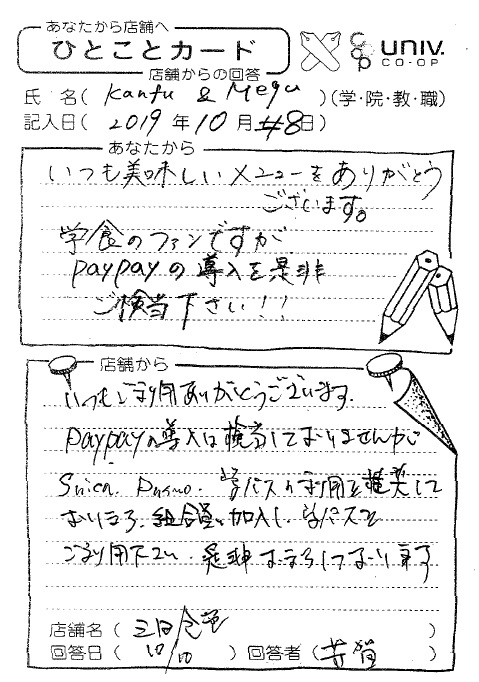 あなたから店舗へ
ひとことカード
店舗からの回答
UNIV.
CO-OP
氏 名( Kanfu & Megu )(学・院・教・職)
記入日( 2019 年 10 月 8日)
あなたから
いつも美味しいメニューをありがとう
ございます。
学食のファンですが
paypayの導入を是非
ご検当下さい!!
店舗から
いつもご利用ありがとうございます.
paypayの導入は検当しておりませんが
Suica. Pasmo. 学パスの利用を推奨して
おります. 組合員に加入し、学パスを
ご利用下さい. 是非お まちしております
店舗名( 三田食堂 )
回答日( 10/10 ) 回答者( 芳賀 )